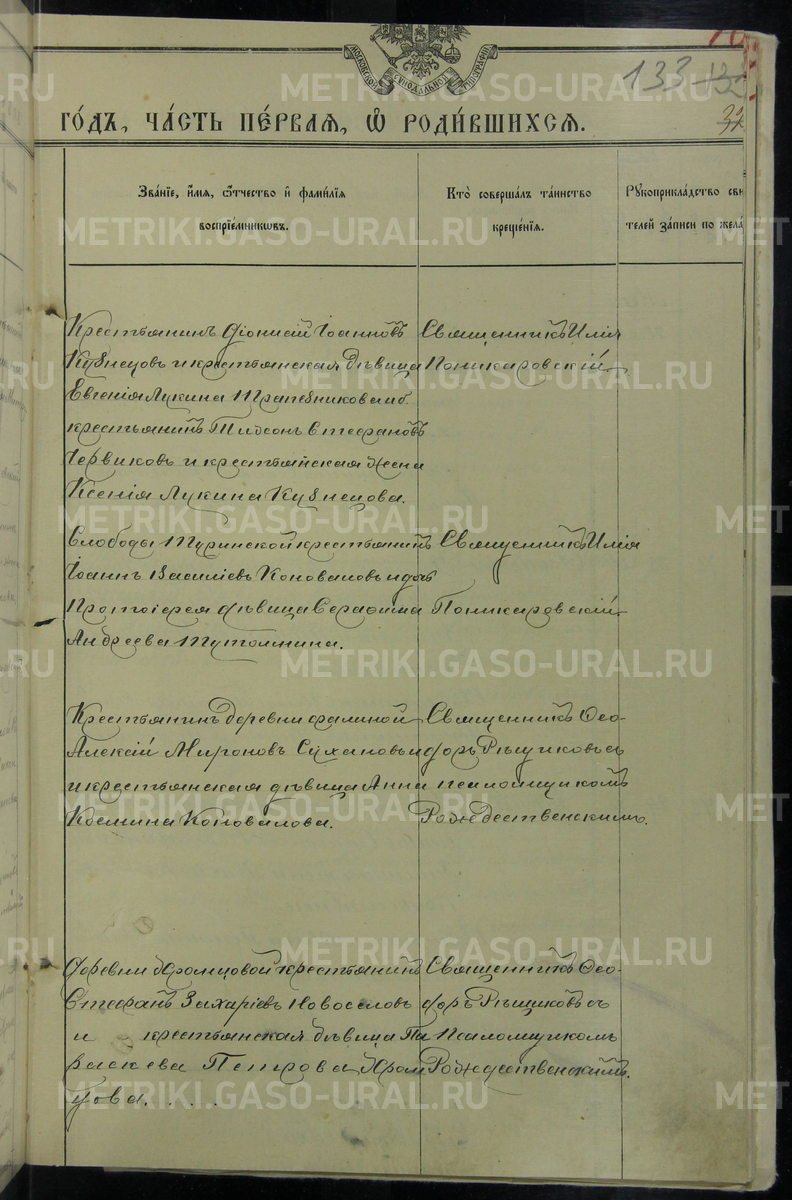 МОСКОВСКОЙ СѴНОДАЛЬНОЙ ТИПОГРАФІИ
133
ГО́ДЪ, ЧА́СТЬ ПЕ́РВАЯ, Ѡ РОДИ́ВШИХСЯ.
Зва́нїе, и́мя, ѻ́тчество и҆ фами́лїя
воспрїе́мникѡвъ.
Кто̀ соверша́лъ та́инство
креще́нїя.
Рꙋкоприкла́дство сви
телей за́писи по жела́
Крестьянинъ Діонисій Іоанновъ
Кузнецовъ и крестьянская дѣвица
Евгенія Лукина
крестьянинъ Стефановъ
Червиковъ и крестьянская жена
Ксенія Лукина Кузнецова.
Священникъ Илія
Поникаровскій
Слободы Туринской крестьянинъ
Іоаннъ Василіевъ Коноваловъ и дочь
Протоіерея дѣвица Серафима
Андреева Тутолмина.
Священникъ Илія
Поникаровскій
Крестьянинъ деревни Фалиной
Алексій Мироновъ Сухановъ
и крестьянская дѣвица Анна
Козмина Коновалова.
Священникъ Ѳео-
доръ Рѣщиковъ съ
псаломщикомъ
Рождественскимъ.
Деревни Храмцовой крестьянинъ
Стефанъ Захаріевъ Новоселовъ
и крестьянская дѣвица Па
раскева Петрова Храм
цова....
Священникъ Ѳео-
доръ Рѣщиковъ съ
Псаломщикомъ
Рождественскимъ.
METRIKI.GASO-URAL.RU